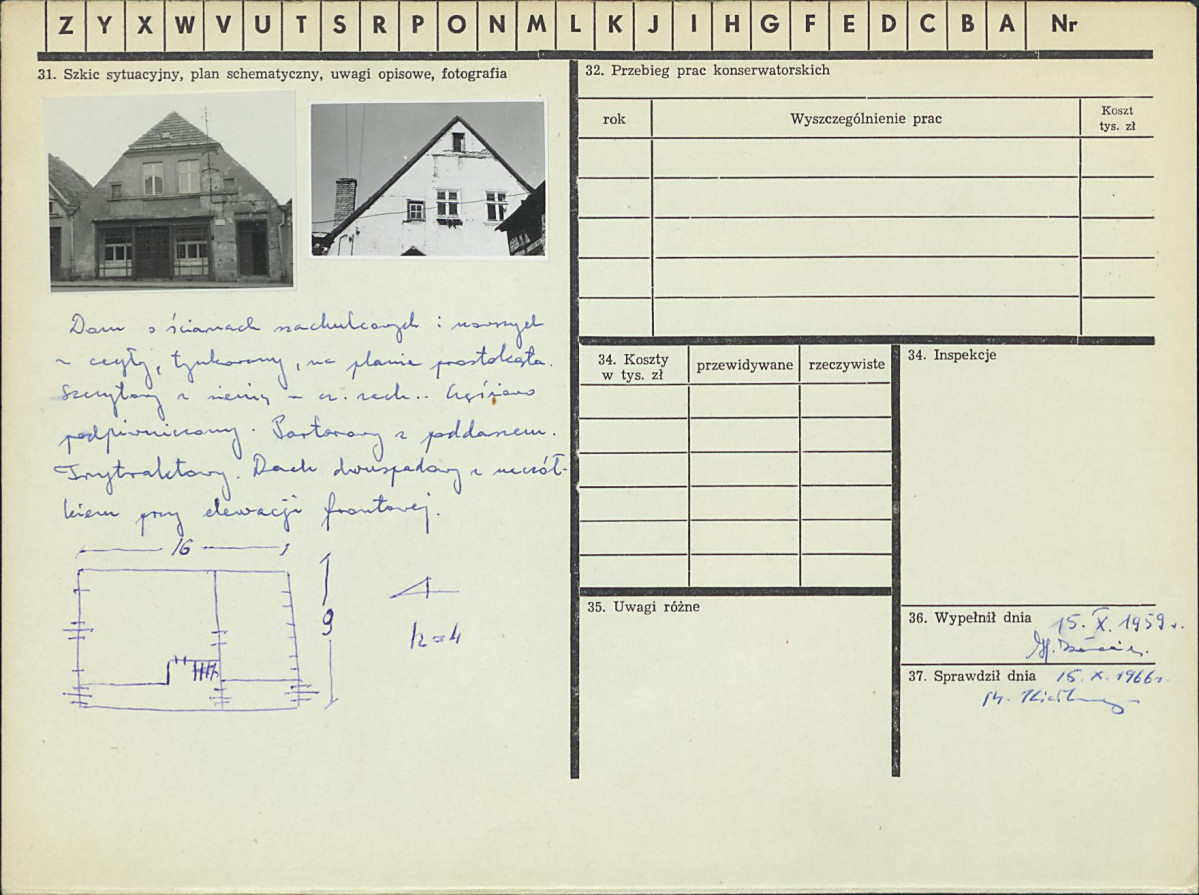 Z Y X W V U T S R P O N M L K J I H G F E D C B A Nr
31. Szkic sytuacyjny, plan schematyczny, uwagi opisowe, fotografia
Dom o ścianach szachulcowych i nowszych
z cegły, tynkowany, na planie prostokąta.
Szczytowy z sienią – cz. zach.. Częściowo
podpiwniczony. Parterowy z poddaszem.
Trzytraktowy. Dach dwuspadowy z naczół-
kiem przy elewacji frontowej.
16
9
h=4
32. Przebieg prac konserwatorskich
rok Wyszczególnienie prac Koszt
tys. zł
34. Koszty
w tys. zł
przewidywane rzeczywiste
34. Inspekcje
35. Uwagi różne
36. Wypełnił dnia 15. X. 1959 r.
37. Sprawdził dnia 15. X. 1966 r.